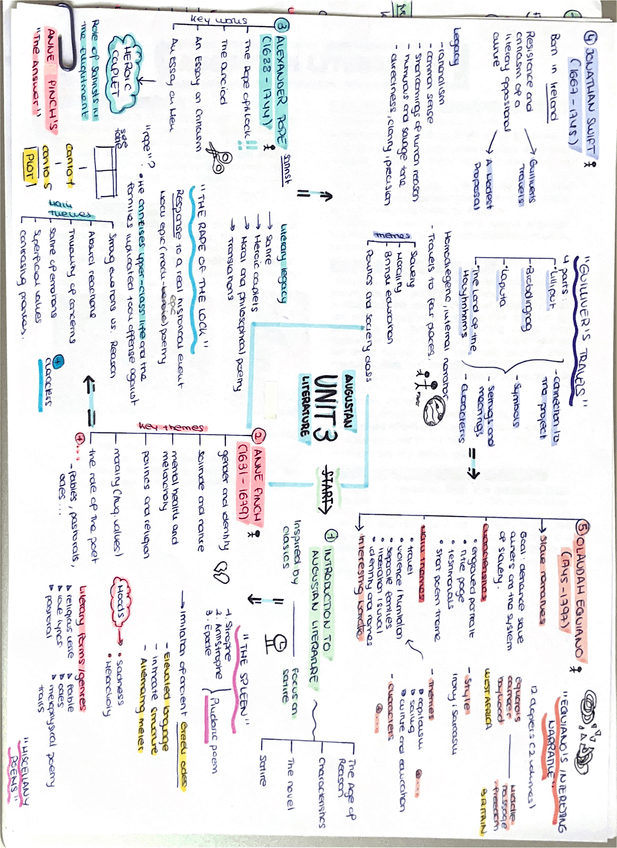 AUGUSTAN
UNIT 3
LITERATURE
START
1 INTRODUCTION TO
AUGUSTAN LITERATURE
Inspired by
clasics
Focus on
satire
The Age of
Reason
Characteristics
The novel
Satire
2 ANNE FINCH
(1631 - 1679)
Key themes
gender and identity
solitude and nature
mental health and
melancholy
politics and religion
morality (Aug. values)
the role of the poet
+...
- fables, pastorals,
odes...
"THE SPLEEN"
1. Strophe
2. Antistrophe
3. Epode
Pindaric poem
→ Imitation of ancient Greek odes
- Elevated language
- Intricate structure
- Alternating meter
Moods
• Sadness
• Melancholy
Literary forms/genres
religious verse
love lyrics
pastoral
fable
odes
metaphysical poetry
traits
"MISCELLANY
POEMS"
3 ALEXANDER POPE
(1688 - 1744)
satirist
Key works
The Rape of the Lock !!
The Dunciad
An Essay on Criticism
An Essay on Man
Literary legacy
→ Satire
→ Heroic couplets
→ Moral and philosophical poetry
→ Translations
HEROIC
COUPLET
Role of satirists in
the enlightenment
ANNE FINCH'S
"THE ANSWER"
"THE RAPE OF THE LOCK"
Response to a real historical event
"rape"?
• He criticises upper-class life and the
families implicated took offense against
canto 1
canto 5
PLOT
Main
themes
Strong emotions vs. Reason
Moral reactions
Triviality of concerns
Satire of emotions
Superficial values
contrasting phrases.
+
CHARACTERS
4 JONATHAN SWIFT
(1667 - 1745)
Born in Ireland
Resistance and
criticism of a
literary oppositional
culture
Gulliver's
Travels
A Modest
Proposal
Legacy
- rationalism
- common sense
- shortcomings of human reason
- humorous and savage tone
- directness, clarity, precision
"GULLIVER'S TRAVELS"
4 parts:
- Lilliput
- Brobdingnag
- Laputa
- The Land of the
Houyhnhnms
- connection to
the project
- Symbols
- settings and
meanings
- characters
Homodiegetic, internal narrator
- Travels to far places.
themes
Slavery
Morality
British education
Politics and society class
5 OLAUDAH EQUIANO
(1745 - 1797)
Slave narratives
Goal: denounce slave
owners and the system
of slavery.
characteristics
• engraved portrait
• title page
• testimonials
• short poem name
Main themes
• travel
• violence / humiliation
• separate families
• individual survival
• identity and names
Interesting Narrative
"EQUIANO'S INTERESTING
NARRATIVE"
12 chapters (2 volumes)
Equiano's
boyhood
WEST AFRICA
Middle-
Passage
freedom
BRITAIN
- Style
Irony / sarcasm
- Themes
capitalism
sailing
culture and education
- characters